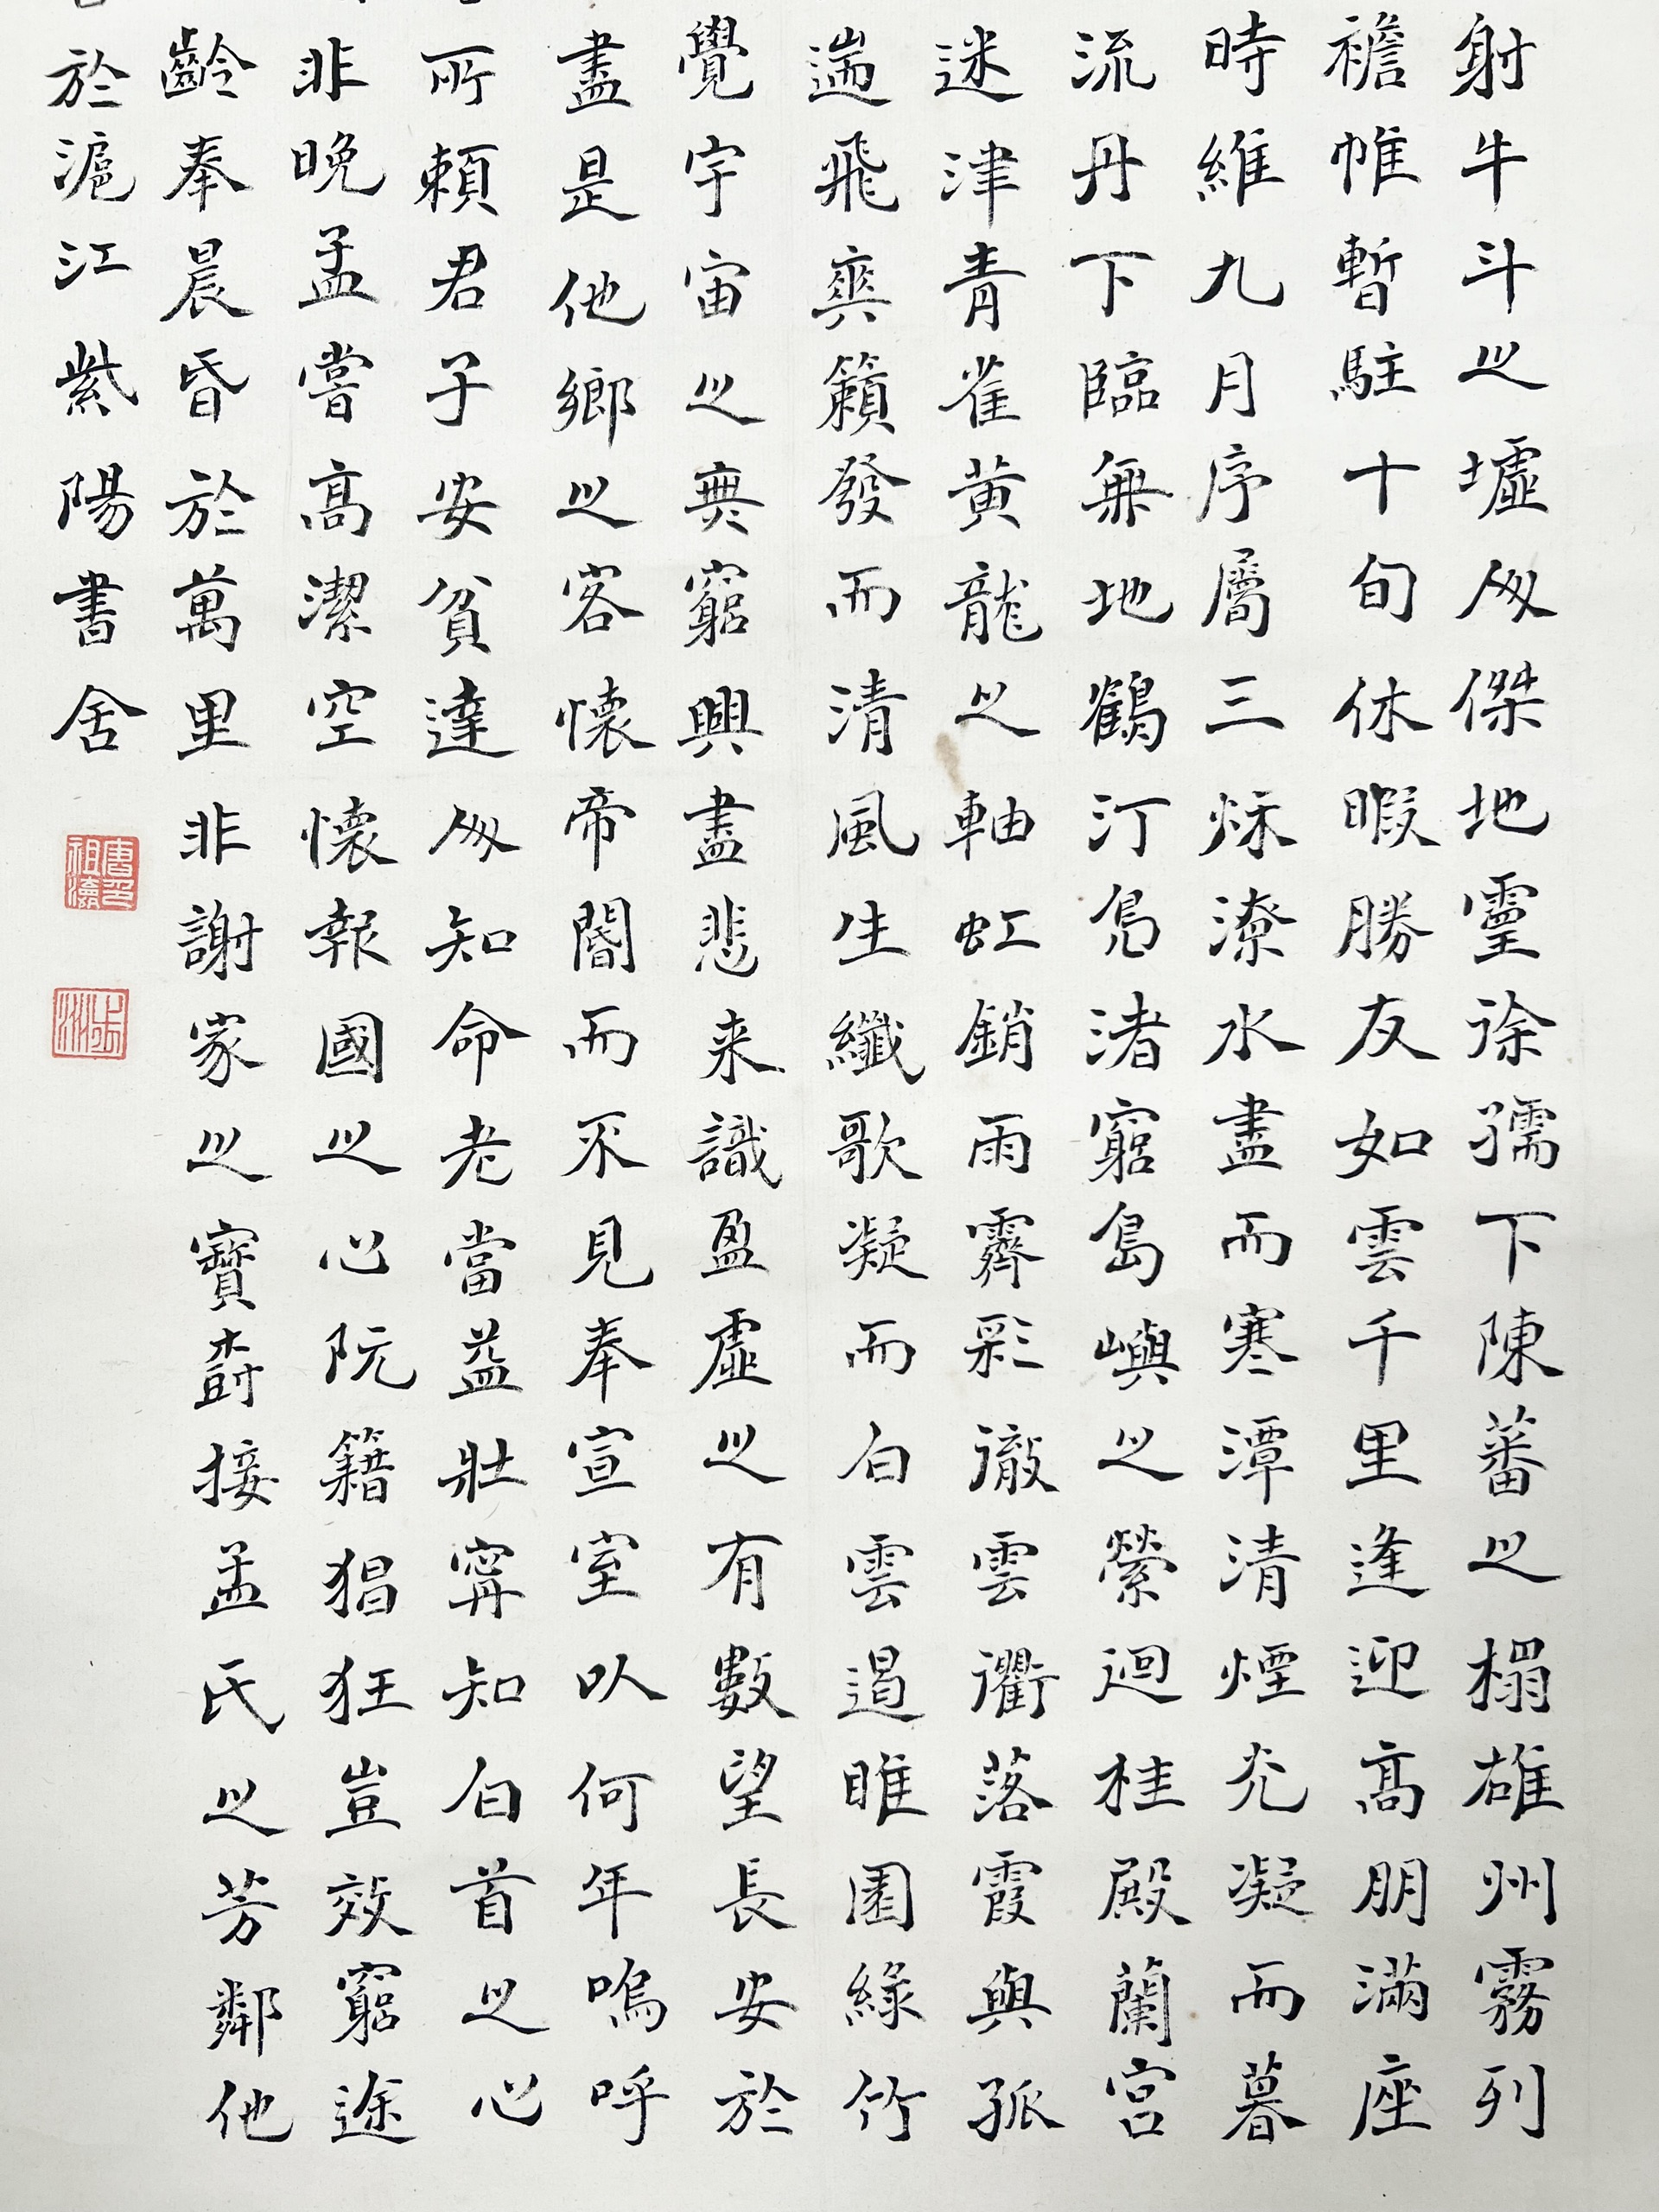 射牛斗之墟人傑地靈徐孺下陳蕃之榻雄州霧列
襜帷暫駐十旬休暇勝友如雲千里逢迎高朋滿座
時維九月序屬三秌潦水盡而寒潭清煙光凝而暮
流丹下臨無地鶴汀鳧渚窮島嶼之縈迴桂殿蘭宮
迷津青雀黃龍之軸虹銷雨霽彩徹雲衢落霞與孤
遄飛爽籟發而清風生纖歌凝而白雲遏睢園綠竹
覺宇宙之無窮興盡悲来識盈虛之有數望長安於
盡是他鄉之客懷帝閽而不見奉宣室以何年嗚呼
所賴君子安貧達人知命老當益壯寧知白首之心
非晚孟嘗高潔空懷報國之心阮籍猖狂豈效窮途
齡奉晨昏於萬里非謝家之寶樹接孟氏之芳鄰他
於滬江紫陽書舍